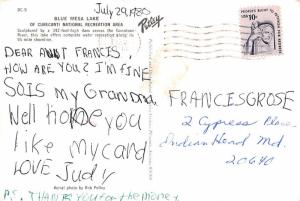 BC-5
July 29, 1980
BLUE MESA LAKE
OF CURECANTI NATIONAL RECREATION AREA
Sculptured by a 342-foot-high dam across the Gunnison
River, this lake offers complete recreation along its
96 mile shoreline.
DEAR AUNT FRANCIS,
HOW ARE YOU? I'M FINE
SO IS my Grandma
Well hope you
like my card
LOVE Judy
Aerial photo by Rick
P.S. THANK YOU for the money.
USA 10c
FRANCES GROSE
2 Cypress Place
Indian Head Md.
20640